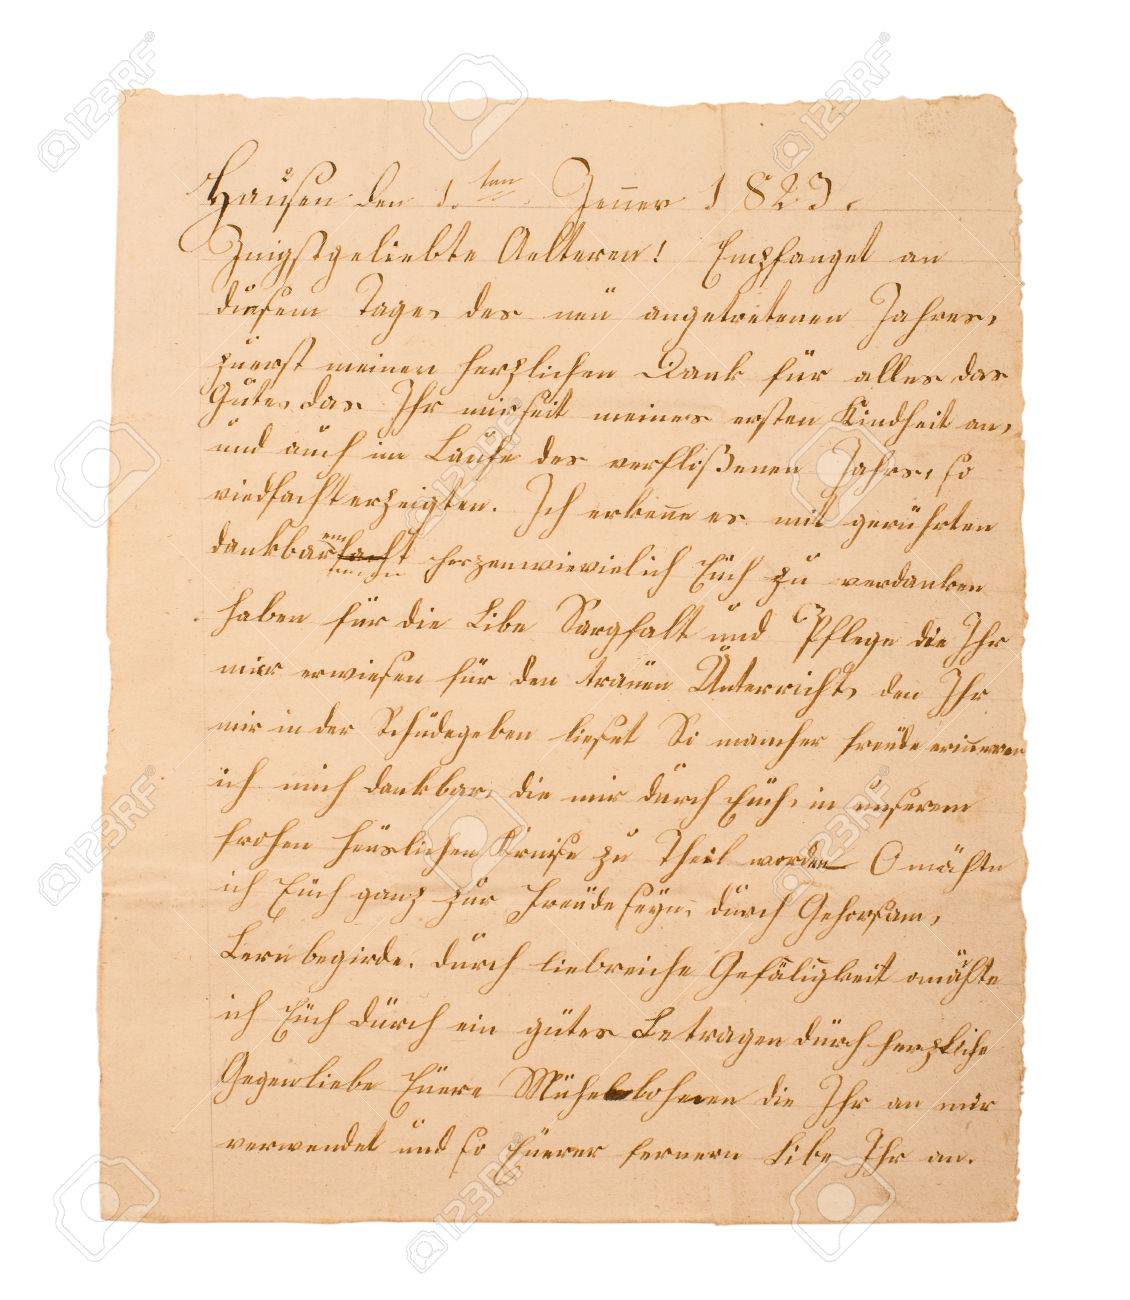 Hausen den 1.ten Jenner 1823.
Jnigstgeliebte Aelteren! Empfanget an
diesem Tage, des neü angetretenen Jahres,
züerst meinen herzlichen Dank für alles das
Gute, das Ihr mir seit meiner ersten Kindheit an,
und auch im Laufe des verfloßenen Jahrs, so
viedfacht erzeigten. Ich erkenne es mit gerührten
dankbar herzen wievielich Eüch zu verdanken
haben für die Libe Sorgfalt und Pflege die Ihr
mir erwiesen für den traüen Unterricht, den Ihr
mir in der geben ließet So mancher freüde erinneren
ich mich dankbar, die mir dürch Eüch, in unserem
frohen heüslichen Kreise zu Theil worden O möchte
ich Eüch ganz zur Freüde seyn, dürch Gehorsam,
Lernbegirde. dürch liebreiche Gefäligkeit o möchte
ich Eüch dürch ein gütes Betragen dürch herzliche
Gegenliebe Eüere Mühe belohenen die Ihr an mir
verwendet und so Eüerer fernern Libe Ihr an.
123RF